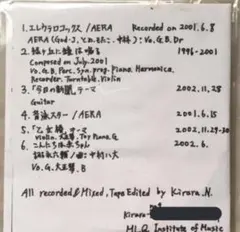 1. エレクラロックス / AERA Recorded on 2001.6.8
AERA (God-J, 中林): Vo.G.B.Dr
2. に雄は鳴る 1996-2001
Composed on July.2001
Vo.G.B.Perc.Syn.prog.Piano.Harmonica.
Recorder.Turntable.Violin
3. 「今日の新聞」テーマ 2002.11.28
Guitar
4. 青泳スター / AERA 2001.6.15
5. 「乙女婦」テーマ 2002.11.29-30
violin.大正琴.Toy Piano.G
6. こんちは赤ちゃん 2002.6.
詞:永六輔 / 曲:中村八大
Vo.G.大正琴.B
All recorded & Mixed, Tape Edited by Kirara.N.
Kirara
MI.Q Institute of Music